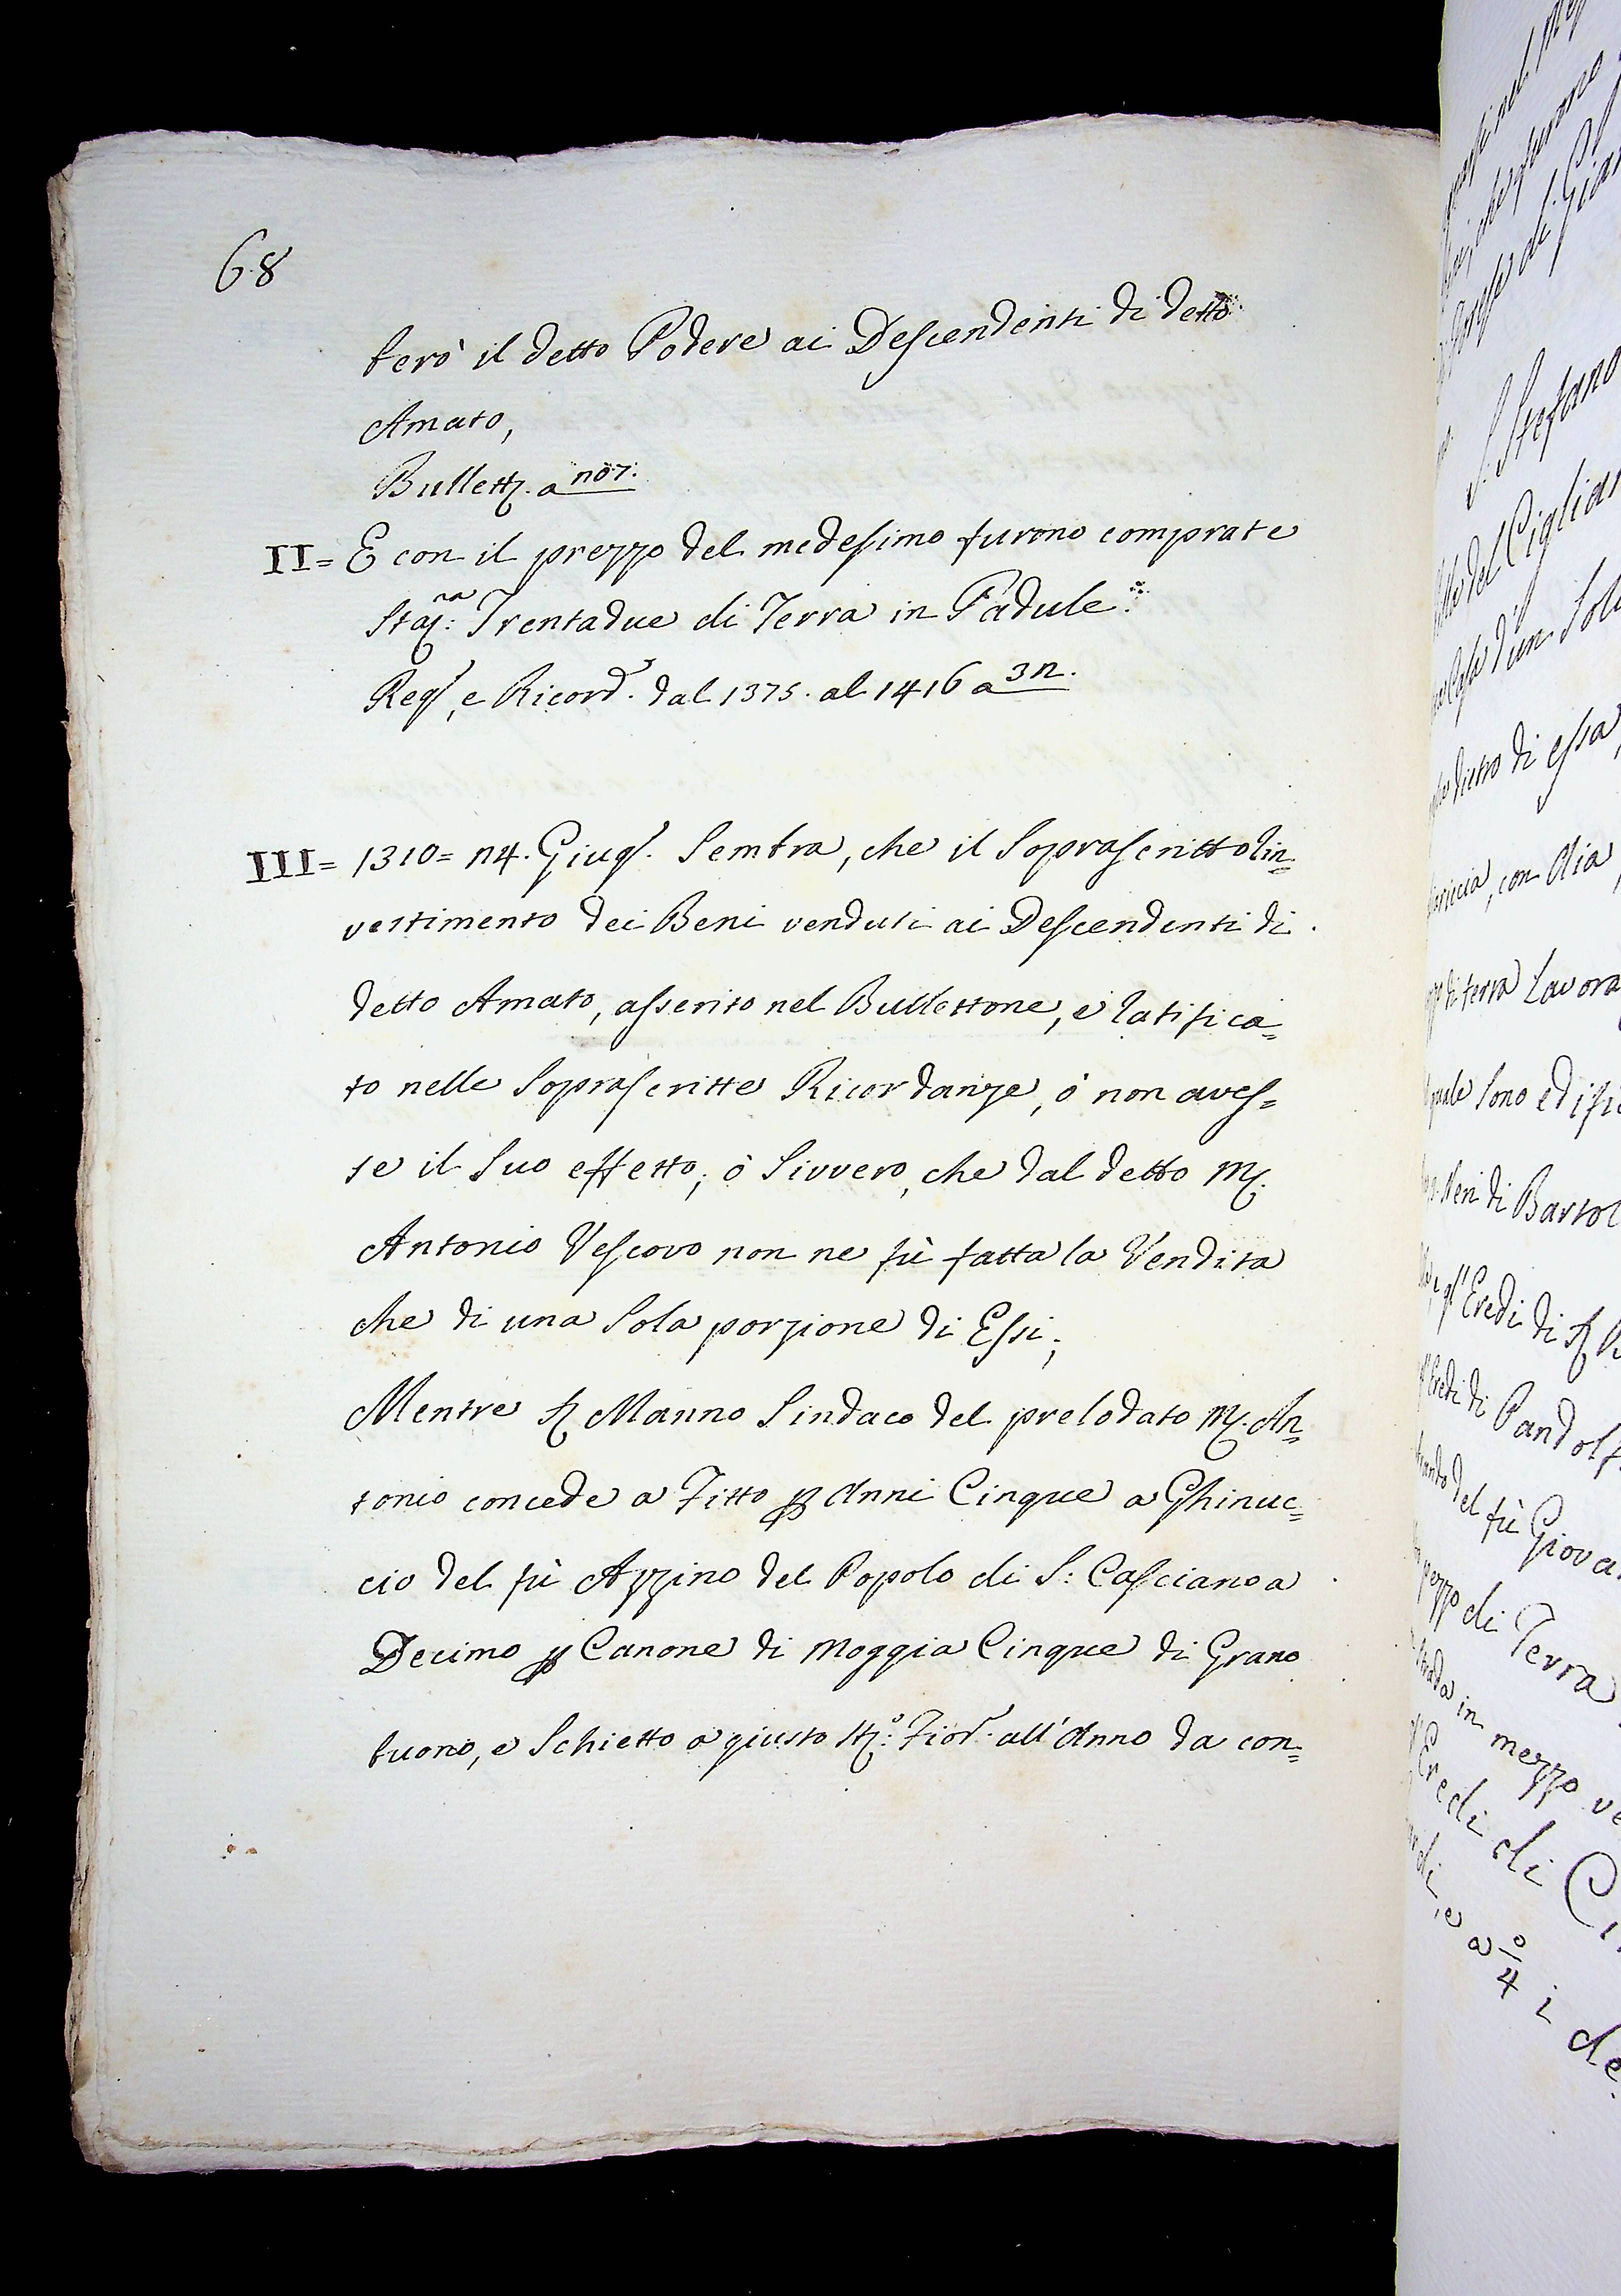 68
berò il detto Podere ai Descendenti di detto
Amato,
Bullett. a n07.
II= E con il prezzo del medesimo furono comprate
Stai.na: Trentadue di Terra in Padule:
Regs, e Ricord. dal 1375. al 1416 a 3n.
III= 1310= n4. Giugs. Sembra, che il Soprascritto lin=
vestimento dei Beni venduti ai Descendenti di
detto Amato, asserito nel Bullettone, e ratifica=
to nelle Soprascritte Ricordanze, ò non aves=
se il Suo effetto; ò Sivvero, che dal detto M.
Antonio Vescovo non ne fù fatta la Vendita
che di una Sola porzione di Essi;
Mentre S. Manno Sindaco del prelodato M. An=
tonio concede a Fitto p Anni Cinque a Ghinuc=
cio del fù Azzino del Popolo di S: Casciano a
Decimo p Canone di Moggia Cinque di Grano
buono, e Schietto a giusto St.o: Fior. all'Anno da con=
S. Stefano
del Ciglian
d'un Sol
dietro di essa
con Aia
di terra Lavora
quale Sono edifi
Neri di Bartol
Eredi di S.
Eredi di Pandolf
del fù Giova
pezzo di Terra
Strada in mezzo ve
Eredi di Ci
e a o/4 i de